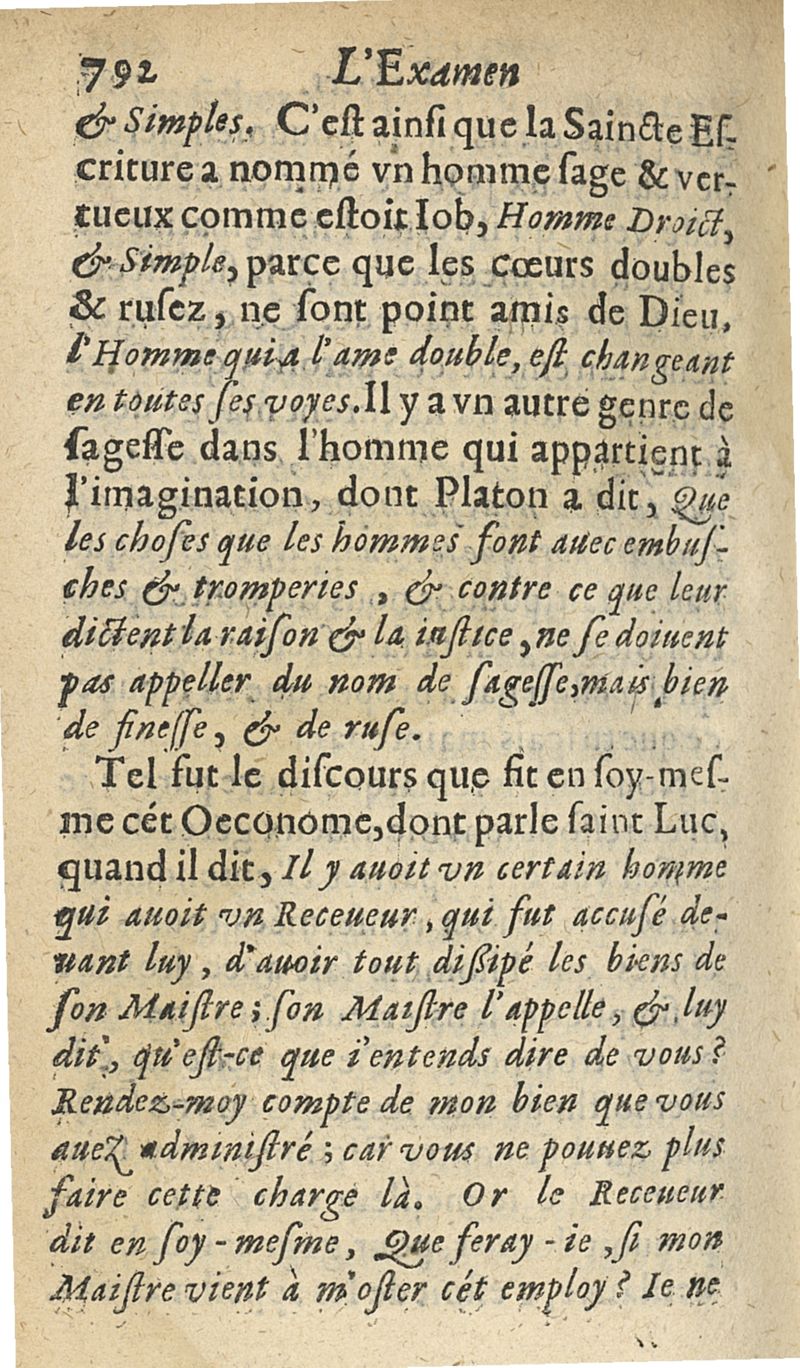 792 L'Examen
& Simples. C'eſt ainſi que la Saincte Eſ-
criture a nommé vn homme ſage & ver-
tueux comme eſtoit Iob, Homme Droict,
& Simple, parce que les cœurs doubles
& ruſez, ne ſont point amis de Dieu,
l'Homme qui a l'ame double, eſt changeant
en toutes ſes voyes. Il y a vn autre genre de
ſageſſe dans l'homme qui appartient à
l'imagination, dont Platon a dit, Que
les choſes que les hommes font auec embuſ-
ches & tromperies, & contre ce que leur
dictent la raiſon & la iuſtice, ne ſe doiuent
pas appeller du nom de ſageſſe, mais bien
de fineſſe, & de ruſe.
Tel fut le diſcours que fit en ſoy-meſ-
me cét Oeconome, dont parle ſaint Luc,
quand il dit, Il y auoit vn certain homme
qui auoit vn Receueur, qui fut accuſé de-
uant luy, d'auoir tout dißipé les biens de
ſon Maiſtre; ſon Maiſtre l'appelle, & luy
dit, qu'eſt-ce que i'entends dire de vous?
Rendez-moy compte de mon bien que vous
auez adminiſtré; car vous ne pouuez plus
faire cette charge là. Or le Receueur
dit en ſoy-meſme, Que feray-ie, ſi mon
Maiſtre vient à m'oſter cét employ? Ie ne